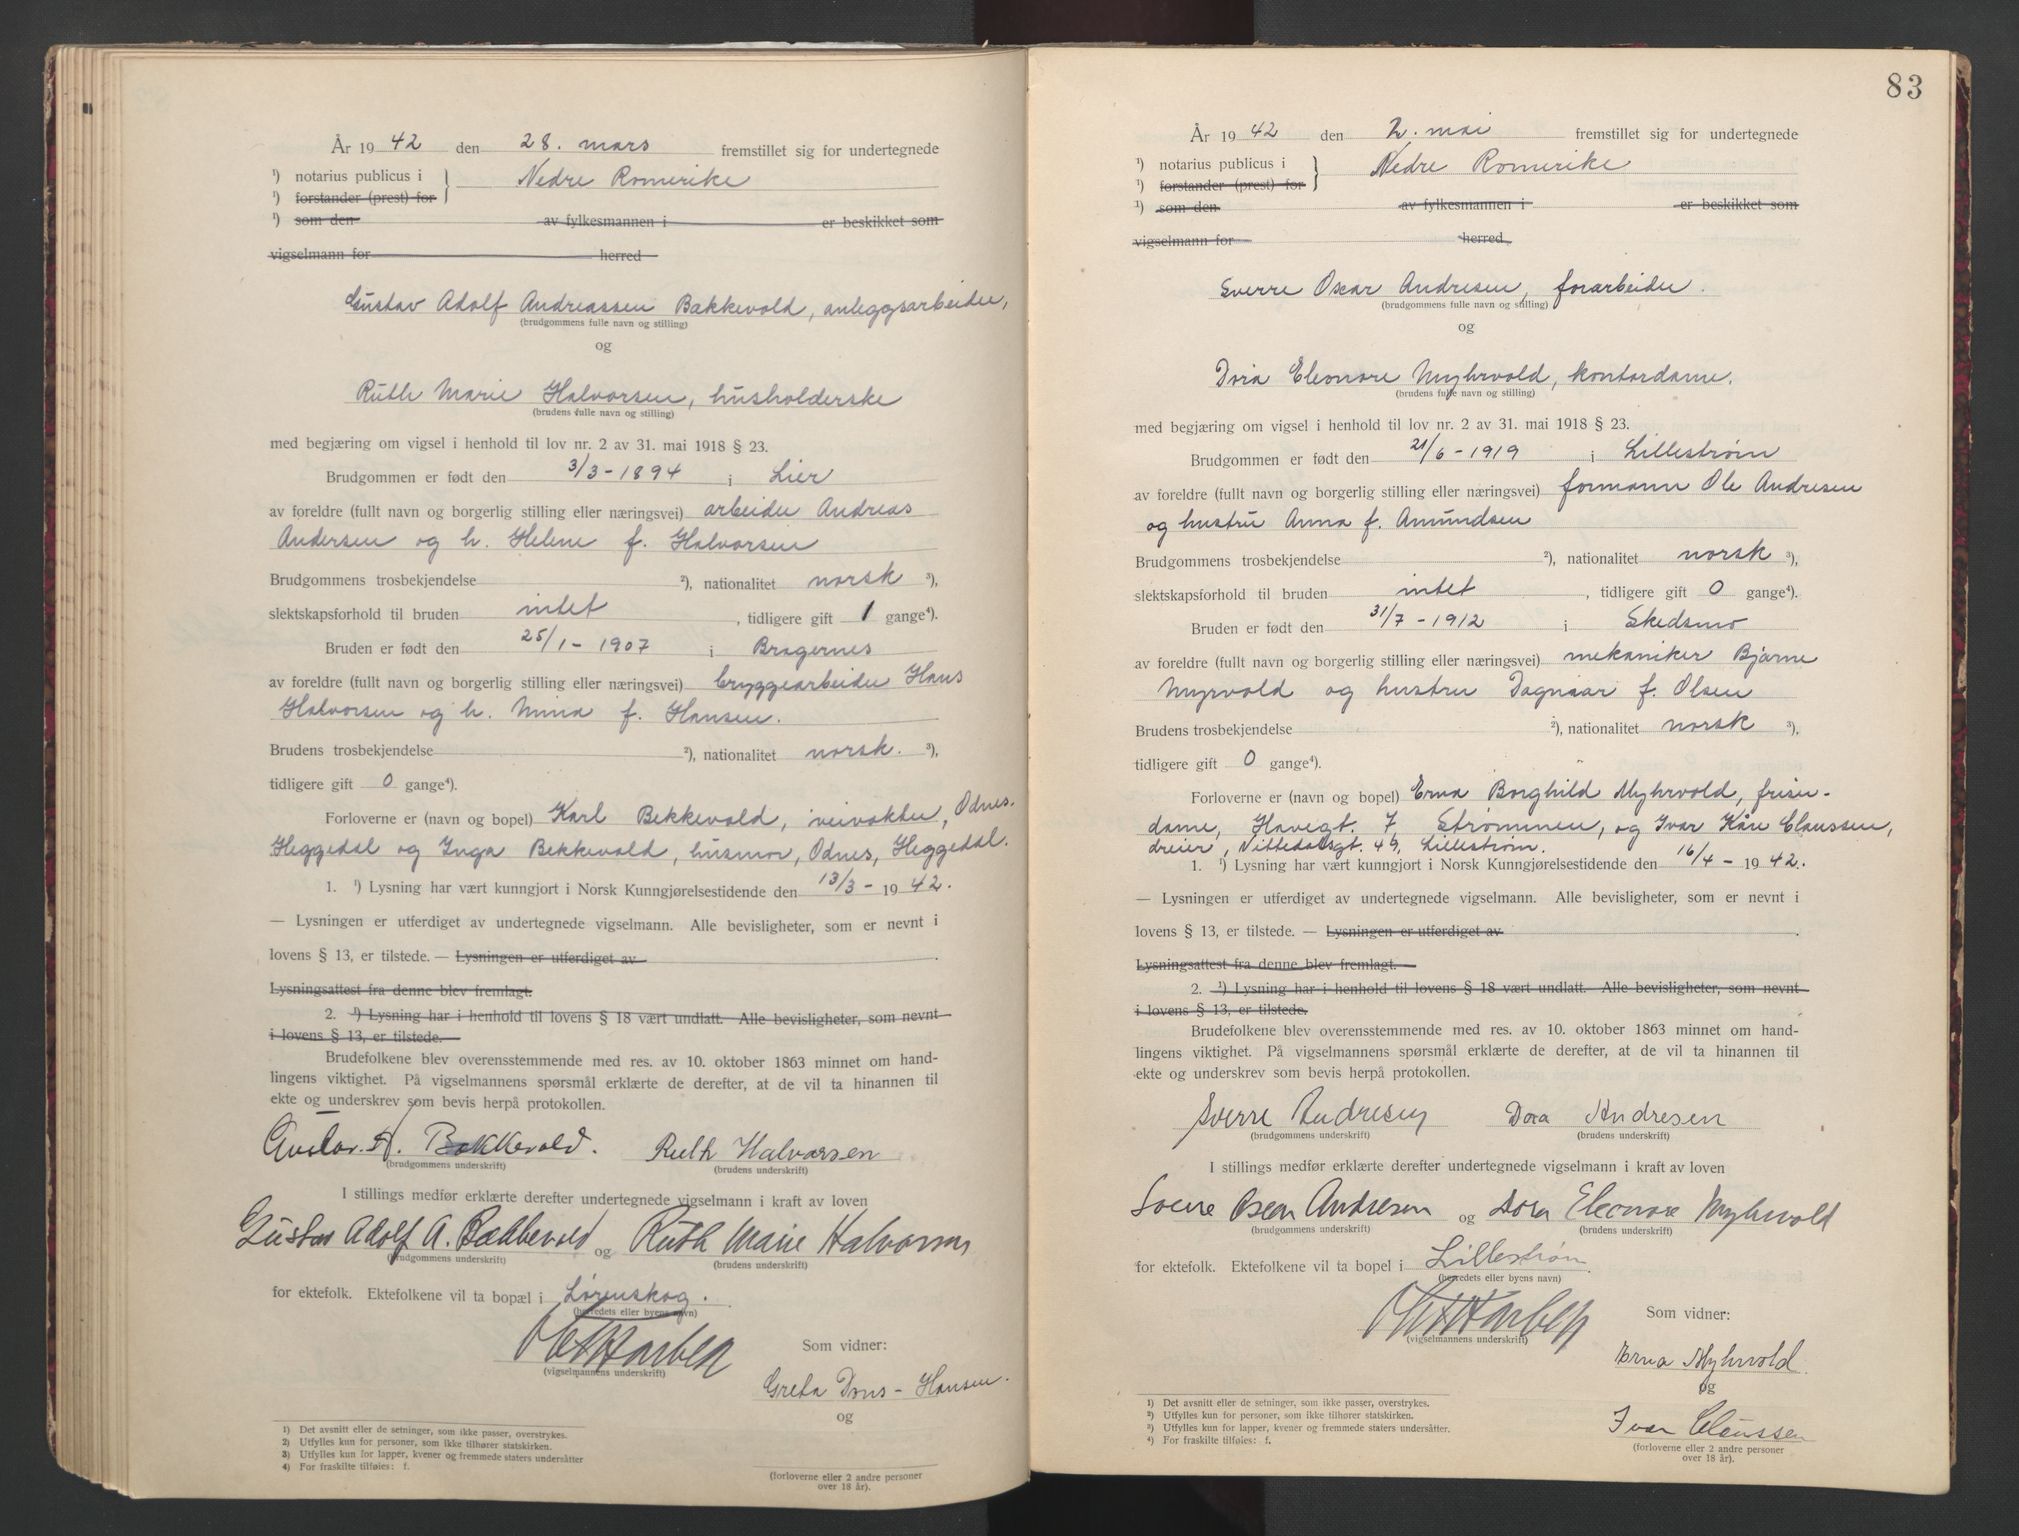 År 1942 den 28. mars fremstillet sig for undertegnede
¹) notarius publicus i } Nedre Romerike
¹) forstander (prest) for
¹) som den av fylkesmannen i er beskikket som
vigselmann for herred
Gustav Adolf Andreassen Bakkevold, anleggsarbeider,
(brudgommens fulle navn og stilling)
og
Ruth Marie Halvorsen, husholderske
(brudens fulle navn og stilling)
med begjæring om vigsel i henhold til lov nr. 2 av 31. mai 1918 § 23.
Brudgommen er født den 3/3-1894 i Lier
av foreldre (fullt navn og borgerlig stilling eller næringsvei) arbeider Andreas
Andersen og h. Helene f. Halvorsen
Brudgommens trosbekjendelse ²), nationalitet norsk ³),
slektskapsforhold til bruden intet, tidligere gift 1 gange⁴).
Bruden er født den 25/1-1907 i Bragernes
av foreldre (fullt navn og borgerlig stilling eller næringsvei) bryggearbeider Hans
Halvorsen og h. Mina f. Hansen.
Brudens trosbekjendelse ²), nationalitet norsk. ³),
tidligere gift 0 gange⁴).
Forloverne er (navn og bopel) Karl Bekkevold, veivokter, Odnes.
Heggedal og Inga Bekkevold, husmor, Odnes, Heggedal.
1. ¹) Lysning har vært kunngjort i Norsk Kunngjørelsestidende den 13/3-1942.
— Lysningen er utferdiget av undertegnede vigselmann. Alle bevisligheter, som er nevnt i
lovens § 13, er tilstede. — Lysningen er utferdiget av .
Lysningsattest fra denne blev fremlagt.
2. ¹) Lysning har i henhold til lovens § 18 vært undlatt. Alle bevisligheter, som nevnt
i lovens § 13, er tilstede.
Brudefolkene blev overensstemmende med res. av 10. oktober 1863 minnet om hand-
lingens viktighet. På vigselmannens spørsmål erklærte de derefter, at de vil ta hinannen til
ekte og underskrev som bevis herpå protokollen.
Gustav. A. Bakkevold. Ruth Halvorsen
(brudgommens underskrift) (brudens underskrift)
I stillings medfør erklærte derefter undertegnede vigselmann i kraft av loven
Gustav Adolf A. Bakkevold og Ruth Marie Halvorsen
(brudgommens underskrift) (brudens underskrift)
for ektefolk. Ektefolkene vil ta bopæl i Lørenskog.
(herredets eller byens navn)
Som vidner:
(vigselmannens underskrift)
Greta Dons-Hansen.
og
¹) Det avsnitt eller de setninger, som ikke passer, overstrykes.
2) Utfylles kun for personer, som ikke tilhører statskirken.
3) Utfylles kun for lapper, kvener og fremmede staters undersåtter
4) For fraskilte tilføies: f.
(forloverne eller 2 andre personer
over 18 år).
83
År 1942 den 2. mai fremstillet sig for undertegnede
¹) notarius publicus i } Nedre Romerike
¹) forstander (prest) for
¹) som den av fylkesmannen i er beskikket som
vigselmann for herred
Sverre Oscar Andresen, forarbeider.
(brudgommens fulle navn og stilling)
og
Dora Eleonore Myhrvold, kontordame.
(brudens fulle navn og stilling)
med begjæring om vigsel i henhold til lov nr. 2 av 31. mai 1918 § 23.
Brudgommen er født den 21/6-1919 i Lillestrøm
av foreldre (fullt navn og borgerlig stilling eller næringsvei) formann Ole Andresen
og hustru Anna f. Amundsen
Brudgommens trosbekjendelse ²), nationalitet norsk ³),
slektskapsforhold til bruden intet, tidligere gift 0 gange⁴).
Bruden er født den 31/7-1912 i Skedsmo
av foreldre (fullt navn og borgerlig stilling eller næringsvei) mekaniker Bjarne
Myrvold og hustru Dagmar f. Olsen
Brudens trosbekjendelse ²), nationalitet norsk ³),
tidligere gift 0 gange⁴).
Forloverne er (navn og bopel) Erna Borghild Myhrvold, friser-
dame, Havegt. 7 Strømmen, og Ivar Kåre Claussen,
dreier, Nittedalsgt. 49, Lillestrøm.
1. ¹) Lysning har vært kunngjort i Norsk Kunngjørelsestidende den 16/4-1942.
— Lysningen er utferdiget av undertegnede vigselmann. Alle bevisligheter, som er nevnt i
lovens § 13, er tilstede. — Lysningen er utferdiget av .
Lysningsattest fra denne blev fremlagt.
2. ¹) Lysning har i henhold til lovens § 18 vært undlatt. Alle bevisligheter, som nevnt
i lovens § 13, er tilstede.
Brudefolkene blev overensstemmende med res. av 10. oktober 1863 minnet om hand-
lingens viktighet. På vigselmannens spørsmål erklærte de derefter, at de vil ta hinannen til
ekte og underskrev som bevis herpå protokollen.
Sverre Andresen Dora Andresen
(brudgommens underskrift) (brudens underskrift)
I stillings medfør erklærte derefter undertegnede vigselmann i kraft av loven
Sverre Oscar Andresen og Dora Eleonore Myhrvold
(brudgommens underskrift) (brudens underskrift)
for ektefolk. Ektefolkene vil ta bopel i Lillestrøm
(herredets eller byens navn)
Som vidner:
(vigselmannens underskrift)
Erna Myhrvold
og
Ivar Claussen
(forloverne eller 2 andre personer
over 18 år).
¹) Det avsnitt eller de setninger, som ikke passer, overstrykes.
²) Utfylles kun for personer, som ikke tilhører statskirken.
³) Utfylles kun for lapper, kvener og fremmede staters undersåtter.
⁴) For fraskilte tilføies: f.